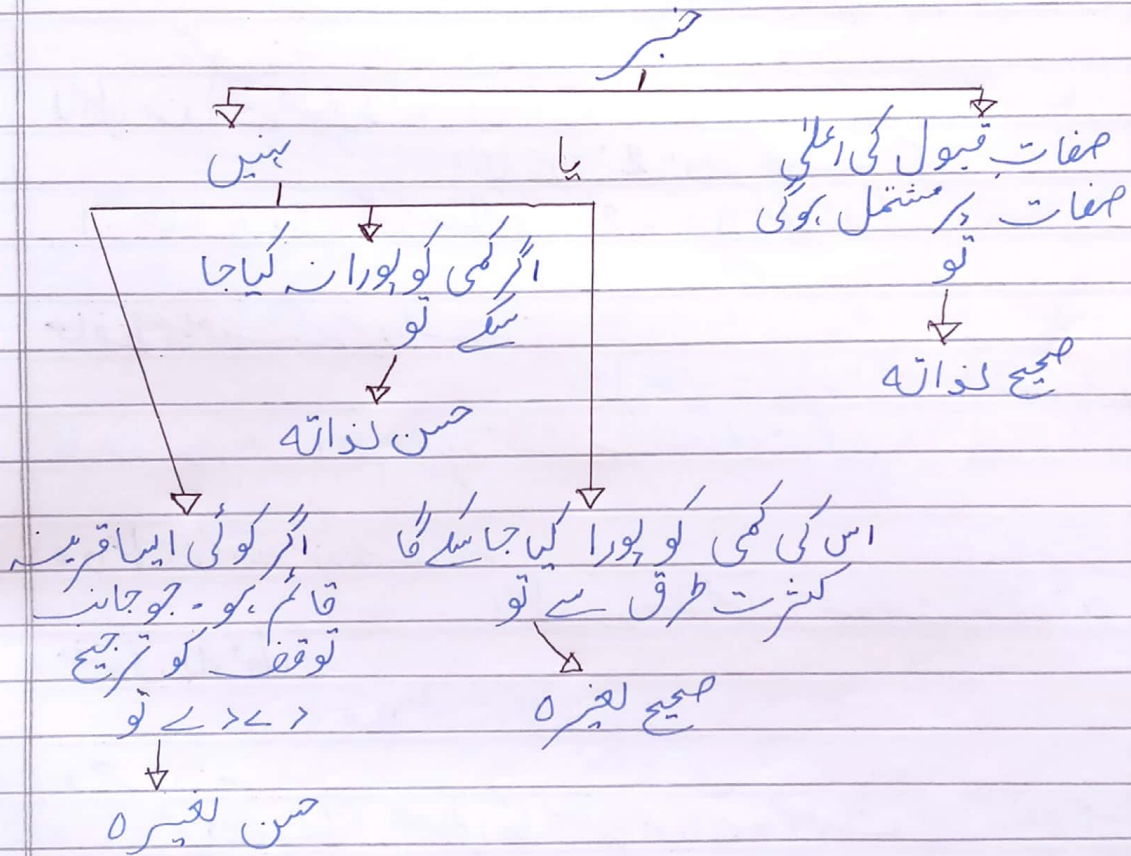 خبر
صفاتِ قبول کی اعلیٰ
صفات پر مشتمل ہوگی
تو
صحیح لذاتہ
یا
نہیں
اگر کمی کو پورا نہ کیا جا
سکے تو
حسن لذاتہ
اس کی کمی کو پورا کیا جا سکے گا
کثرت طرق سے تو
صحیح لغیرہ
اگر کوئی ایسا قرینہ
قائم ہو۔ جو جانب
توقف کو ترجیح
دے دے تو
حسن لغیرہ